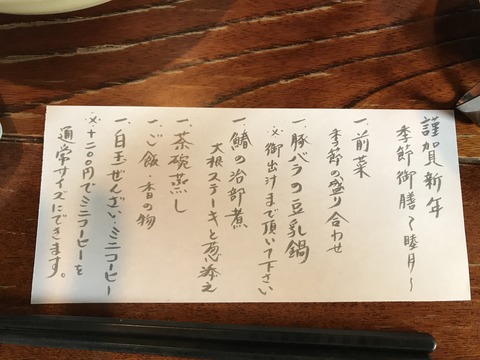 謹賀新年
季節御膳〜睦月〜
一、前菜
季節の盛り合わせ
一、豚バラの豆乳鍋
※御出汁まで頂いて下さい
一、鰆の治部煮
大根ステーキと葱添え
一、茶碗蒸し
一、ご飯・香の物
一、白玉ぜんざい・ミニコーヒー
※＋二〇〇円でミニコーヒーを
通常サイズにできます。